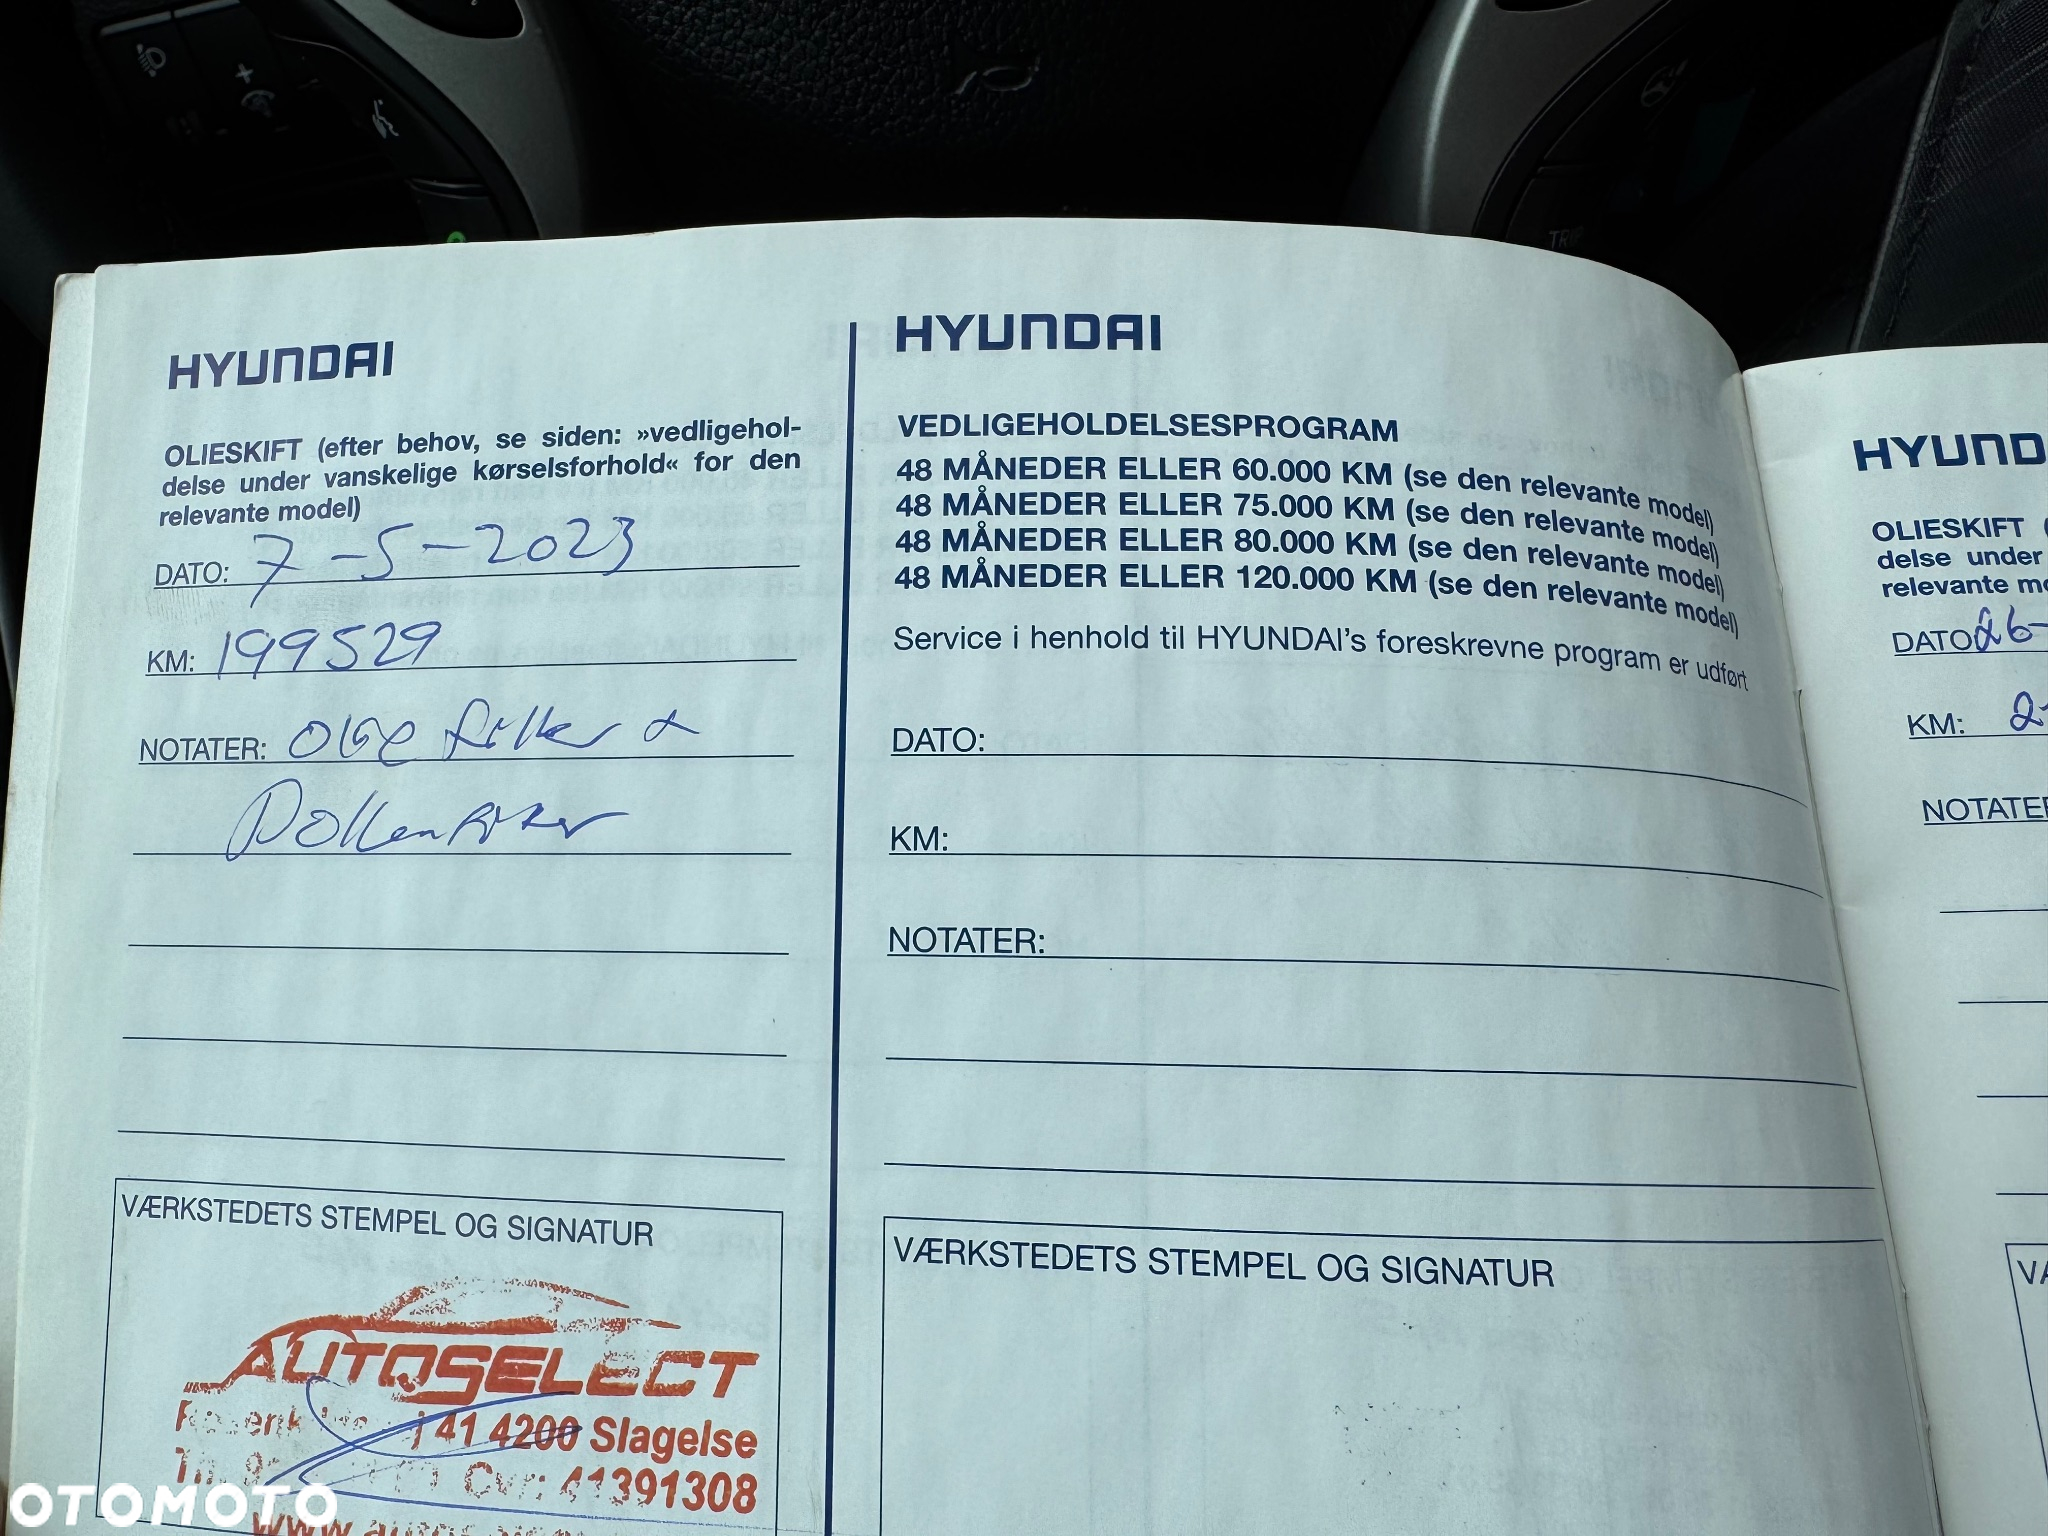 TRIP
HYUNDAI
OLIESKIFT (efter behov, se siden: »vedligehol-
delse under vanskelige kørselsforhold« for den
relevante model)
DATO: 7-5-2023
KM: 199529
NOTATER: Olie filter &
Pollenfilter
VÆRKSTEDETS STEMPEL OG SIGNATUR
AUTOSELECT
j 41 4200 Slagelse
Cvr: 41391308
HYUNDAI
VEDLIGEHOLDELSESPROGRAM
48 MÅNEDER ELLER 60.000 KM (se den relevante model)
48 MÅNEDER ELLER 75.000 KM (se den relevante model)
48 MÅNEDER ELLER 80.000 KM (se den relevante model)
48 MÅNEDER ELLER 120.000 KM (se den relevante model)
Service i henhold til HYUNDAI's foreskrevne program er udført
DATO:
KM:
NOTATER:
VÆRKSTEDETS STEMPEL OG SIGNATUR
HYUND
OLIESKIFT (
delse under
relevante mo
DATO 26-
KM: 2
NOTATE
VÆ
OTOMOTO